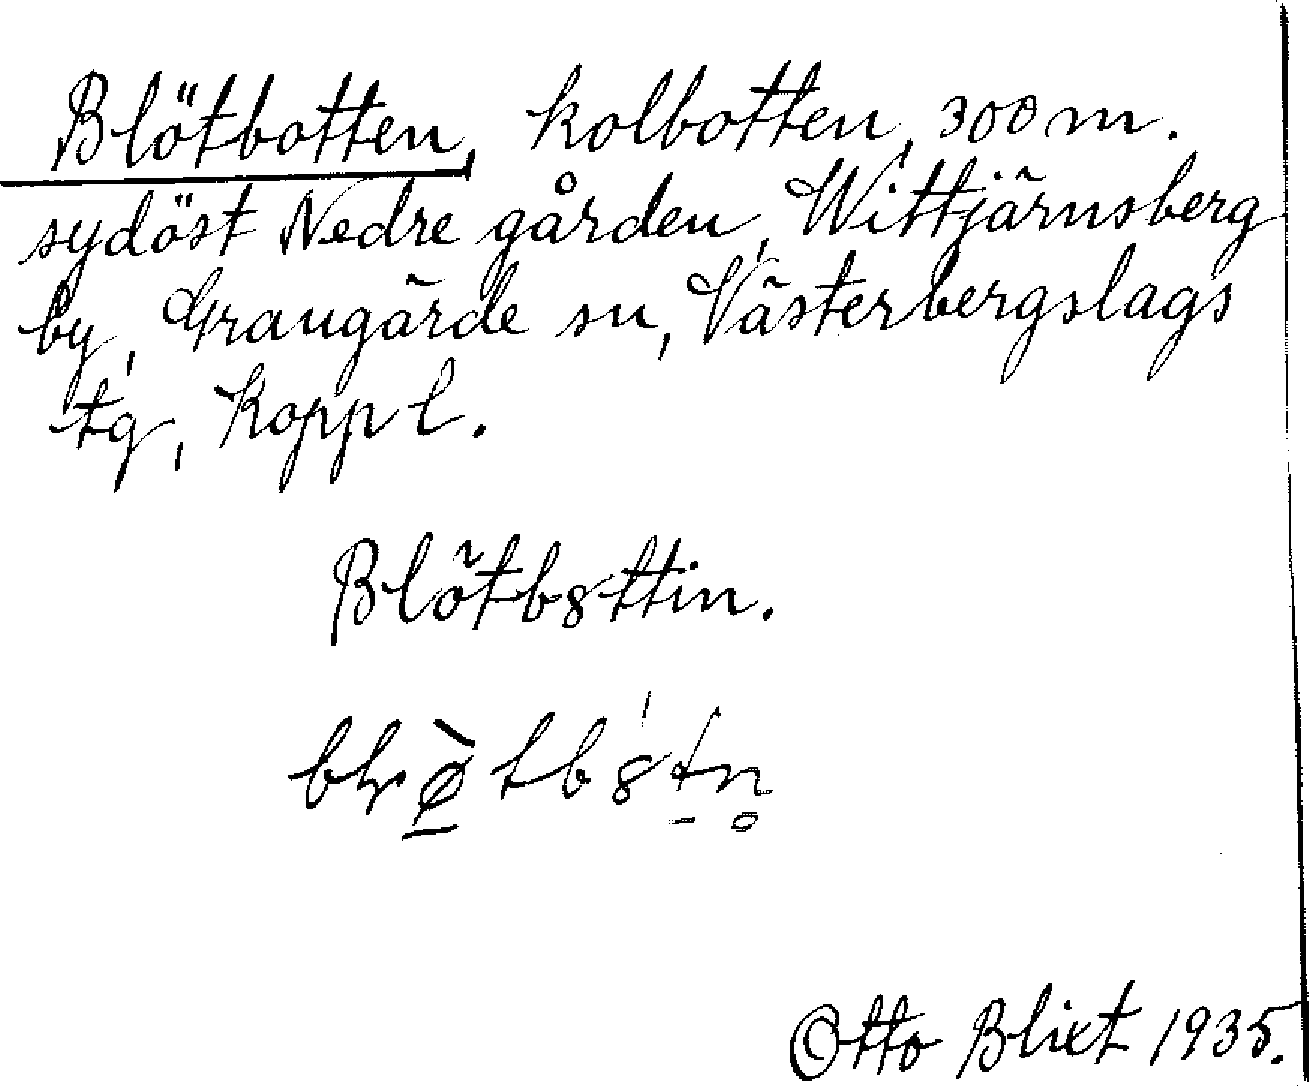 Blötbotten, kolbotten, 300 m.
sydöst Nedre gården, Wittjärnsberg
by, Grangärde sn, Västerbergslags
tg, Kopp l.
Blötb8ttin.
Otto Blixt 1935.